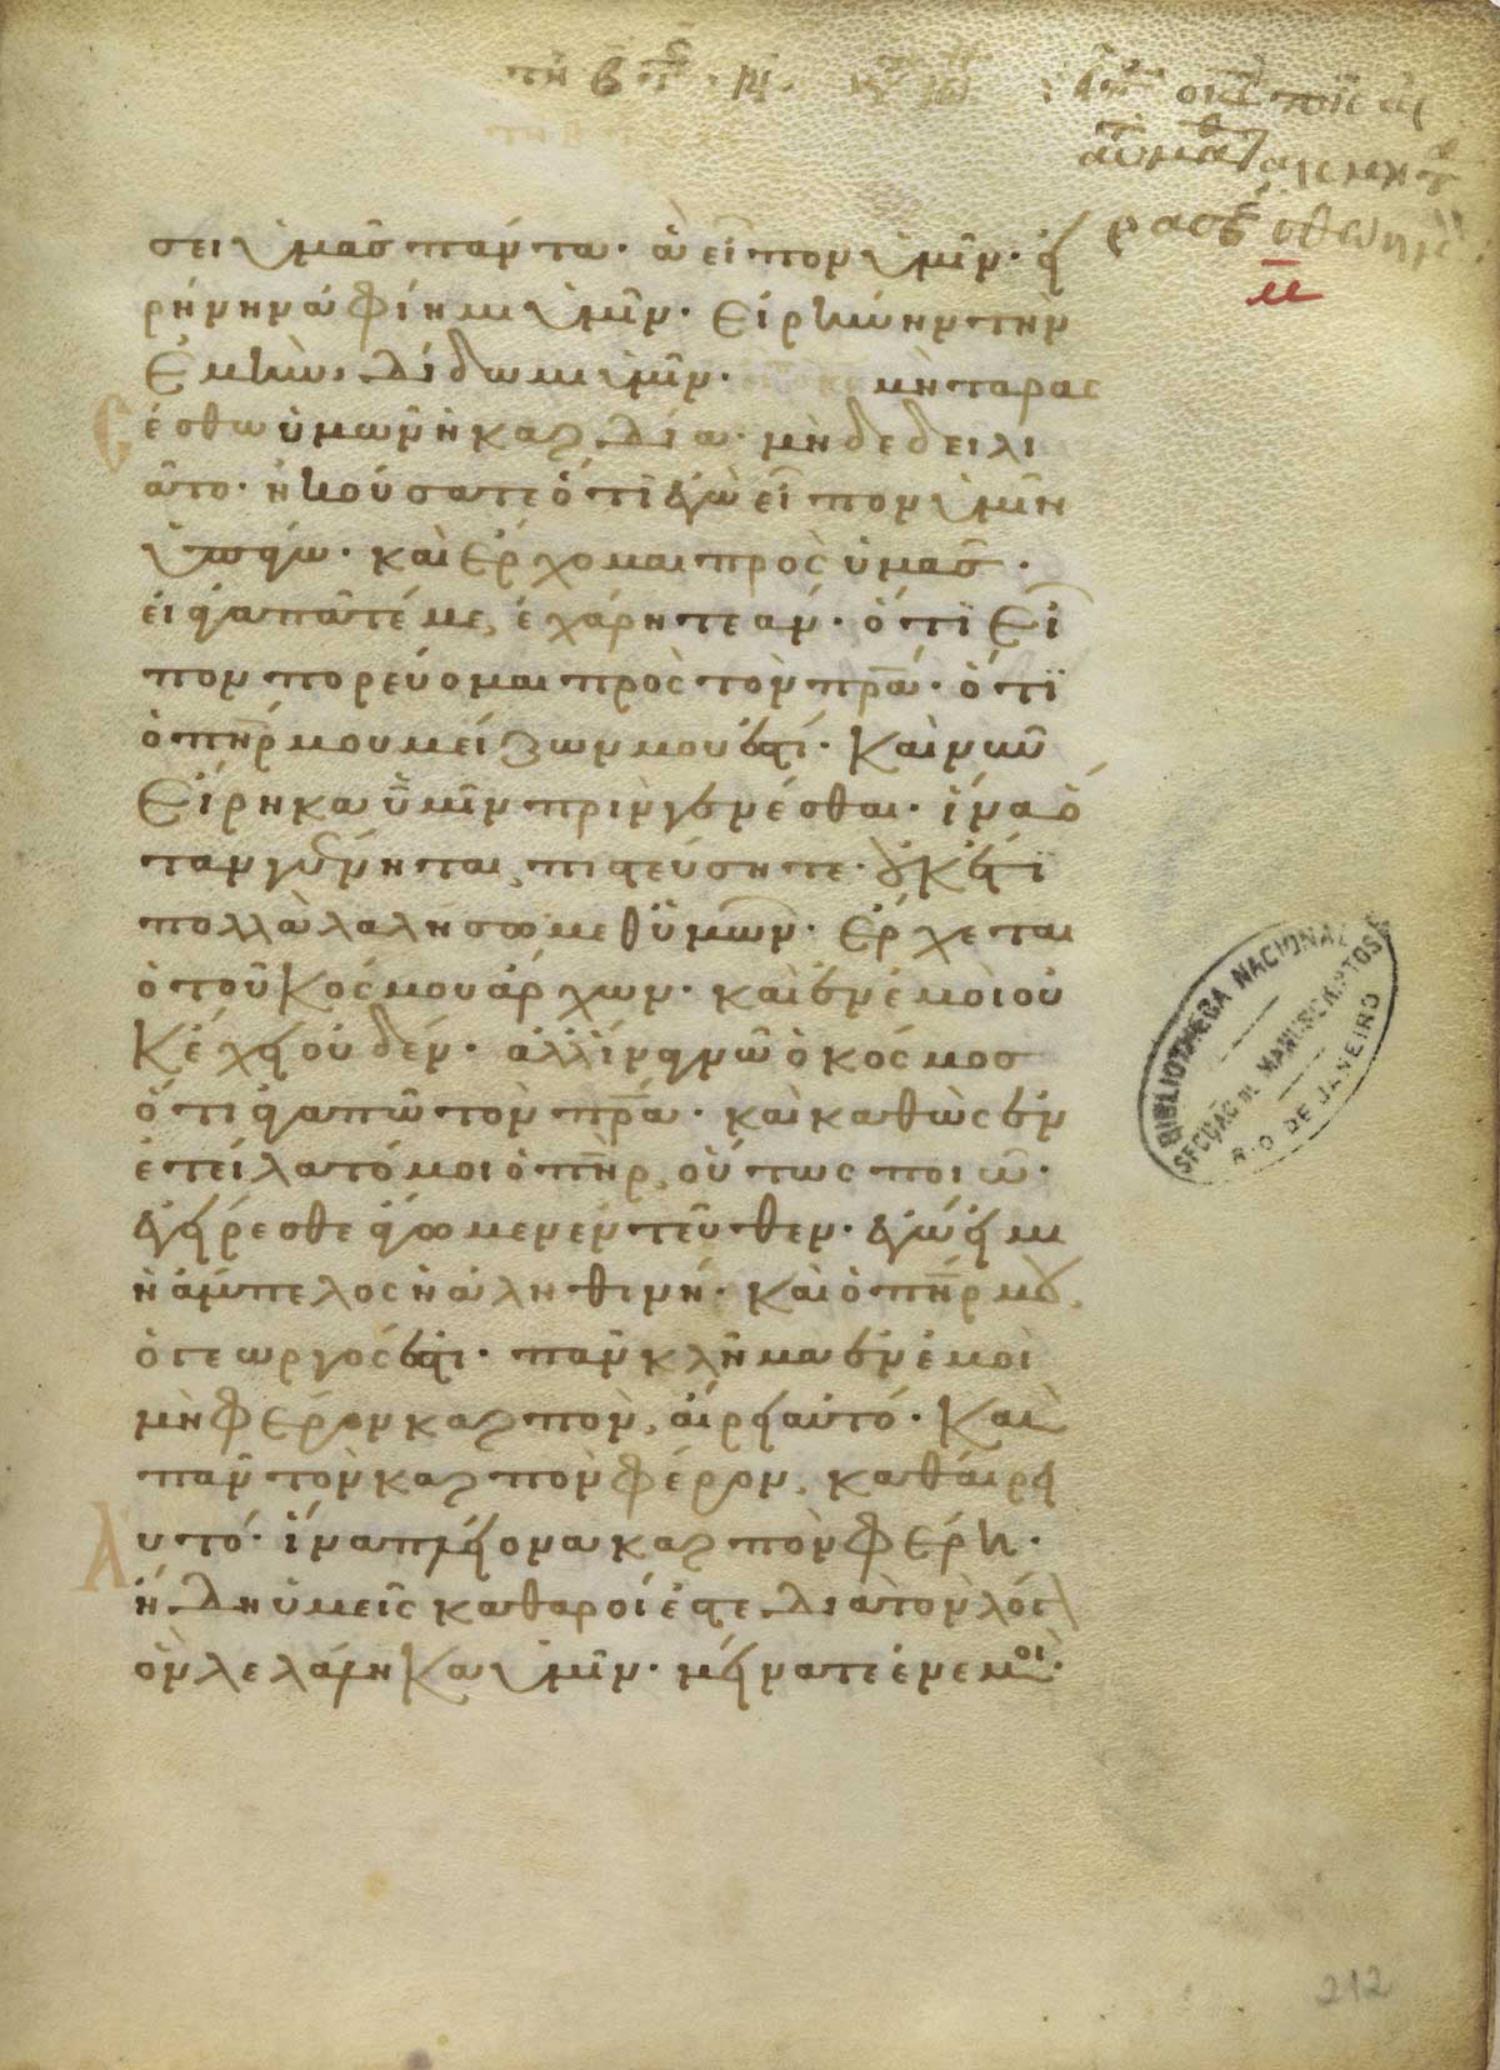 τῇ β τῆς
σει ὑμᾶς πάντα· ἃ εἶπον ὑμῖν· εἰ
ρήνην ἀφίημι ὑμῖν· εἰρήνην τὴν
ἐμὴν δίδωμι ὑμῖν· μὴ ταρας
έσθω ὑμῶν ἡ καρδία· μηδὲ δειλι
άτω· ἠκούσατε ὅτι ἐγὼ εἶπον ὑμῖν
ὑπάγω· καὶ ἔρχομαι πρὸς ὑμᾶς·
εἰ ἠγαπᾶτέ με, ἐχάρητε ἄν· ὅτι εἶ
πον πορεύομαι πρὸς τὸν πρ̅α· ὅτι
ὁ πη̅ρ μου μείζων μου ἐστί· καὶ νῦν
εἴρηκα ὑμῖν πρὶν γενέσθαι· ἵνα ὅ
ταν γένηται, πιστεύσητε· οὐκ ἔτι
πολλὰ λαλήσω μεθ ὑμῶν· ἔρχεται
ὁ τοῦ κόσμου ἄρχων· καὶ ἐν ἐμοὶ οὐ
κ ἔχει οὐδέν· ἀλλ ἵνα γνῶ ὁ κόσμος
ὅτι ἀγαπῶ τὸν πρ̅α· καὶ καθὼς ἐν
ετείλατό μοι ὁ πη̅ρ, οὕτως ποιῶ·
ἐγείρεσθε ἄγωμεν ἐντεῦθεν· ἐγώ εἰμι
ἡ ἄμπελος ἡ ἀληθινή· καὶ ὁ πη̅ρ μου,
ὁ γεωργός ἐστι· πᾶν κλῆμα ἐν ἐμοὶ
μὴ φέρον καρπὸν, αἴρει αὐτό· καὶ
πᾶν τὸ καρπὸν φέρον, καθαίρει α
υτό· ἵνα πλείονα καρπὸν φέρῃ·
ἤδη ὑμεῖς καθαροί ἐστε διὰ τὸν λόγ
ον ὃν λελάληκα ὑμῖν· μείνατε ἐν ἐμοὶ·
BIBLIOTHECA NACIONAL
SECÇÃO DE MANUSCRIPTOS
RIO DE JANEIRO
212